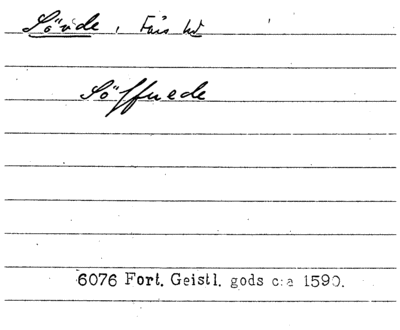 Sövde, Färs hd
Söffuede
6076 Fort. Geistl. gods c:a 1590.